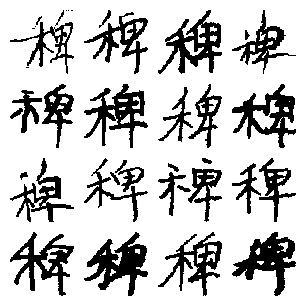 稗稗稗稗
稗稗稗稗
稗稗稗稗
稗稗稗稗